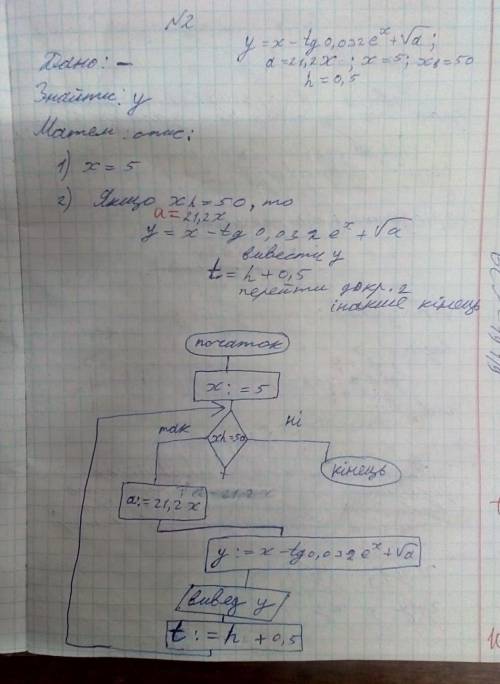 №2
y = x - tg 0,032 e^x + √a ;
a = 21,2x ; x = 5; xh = 50
h = 0,5
Дано: —
Знайти: y
Матем. опис:
1) x = 5
2) Якщо xh = 50, то
a = 21,2x
y = x - tg 0,032 e^x + √a
вивести y
t = h + 0,5
перейти до кр. 2
інакше кінець
початок
x := 5
так
xh=50
ні
кінець
a := 21,2 x
y := x - tg 0,032 e^x + √a
вивед y
t := h + 0,5